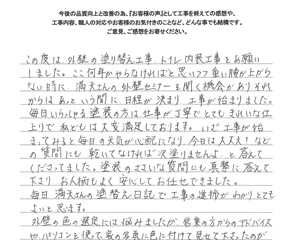 今後の品質向上と改善の為、『お客様の声』として工事を終えての感想や、
工事内容、職人の対応やお客様のお気付きのことなど、どんな事でも結構です。
ご意見、ご感想をお寄せください。
この度は、外壁の塗替え工事、トイレ内装工事をお願い
しました。ここ何年かやらなければと思いつつ重い腰が上がら
ない時に 満天さんの外壁セミナーを聞く機会がありそれ
からはあっと いう間に 日程が決まり 工事が始まりました。
毎日いらっしゃる塗装の方は仕事が丁寧でとてもきれいな仕
上りで私どもは大変満足しております。いざ工事が始
まってみると毎日の天気が心配になり 今日は大丈夫？など
の質問にも 乾いてなければ次塗りませんよ と答えて
くださってました。塗装のささいな質問にも真摯に答えて
下さり お人柄もよく安心してお任せできました。
毎日 満天さんの塗替え日記で工事の進捗がわかりとても
よいと思います。
外壁の色の選定には悩みましたが営業の方からのアドバイス
や、パソコンを使って家の写真に色に付けて見せて下さったのが